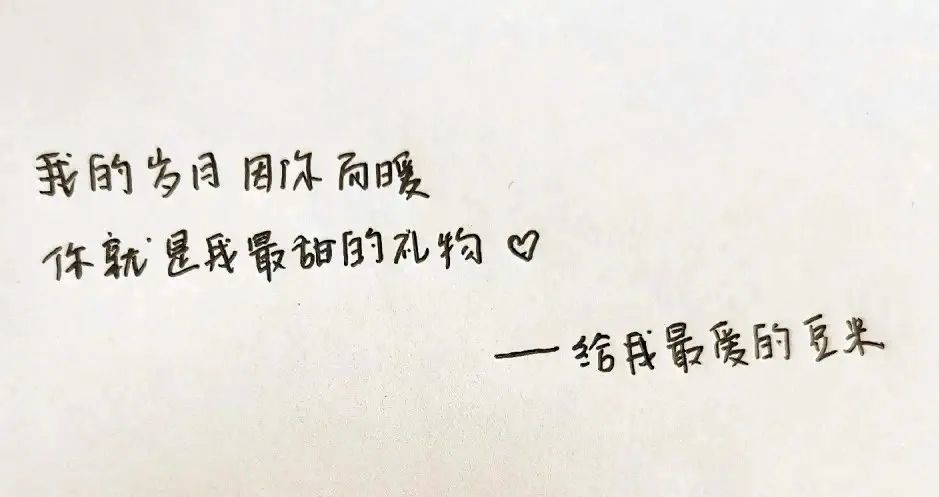 我的岁月因你而暖
你就是我最甜的礼物♡
——给我最爱的豆米